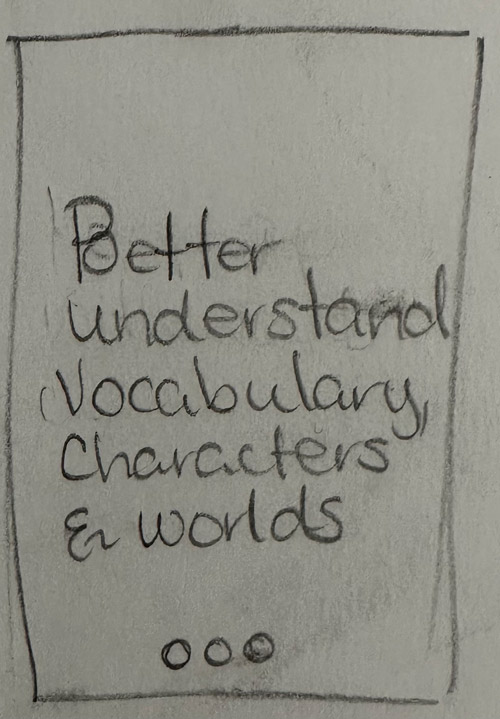 Better
understand
vocabulary,
characters
& worlds